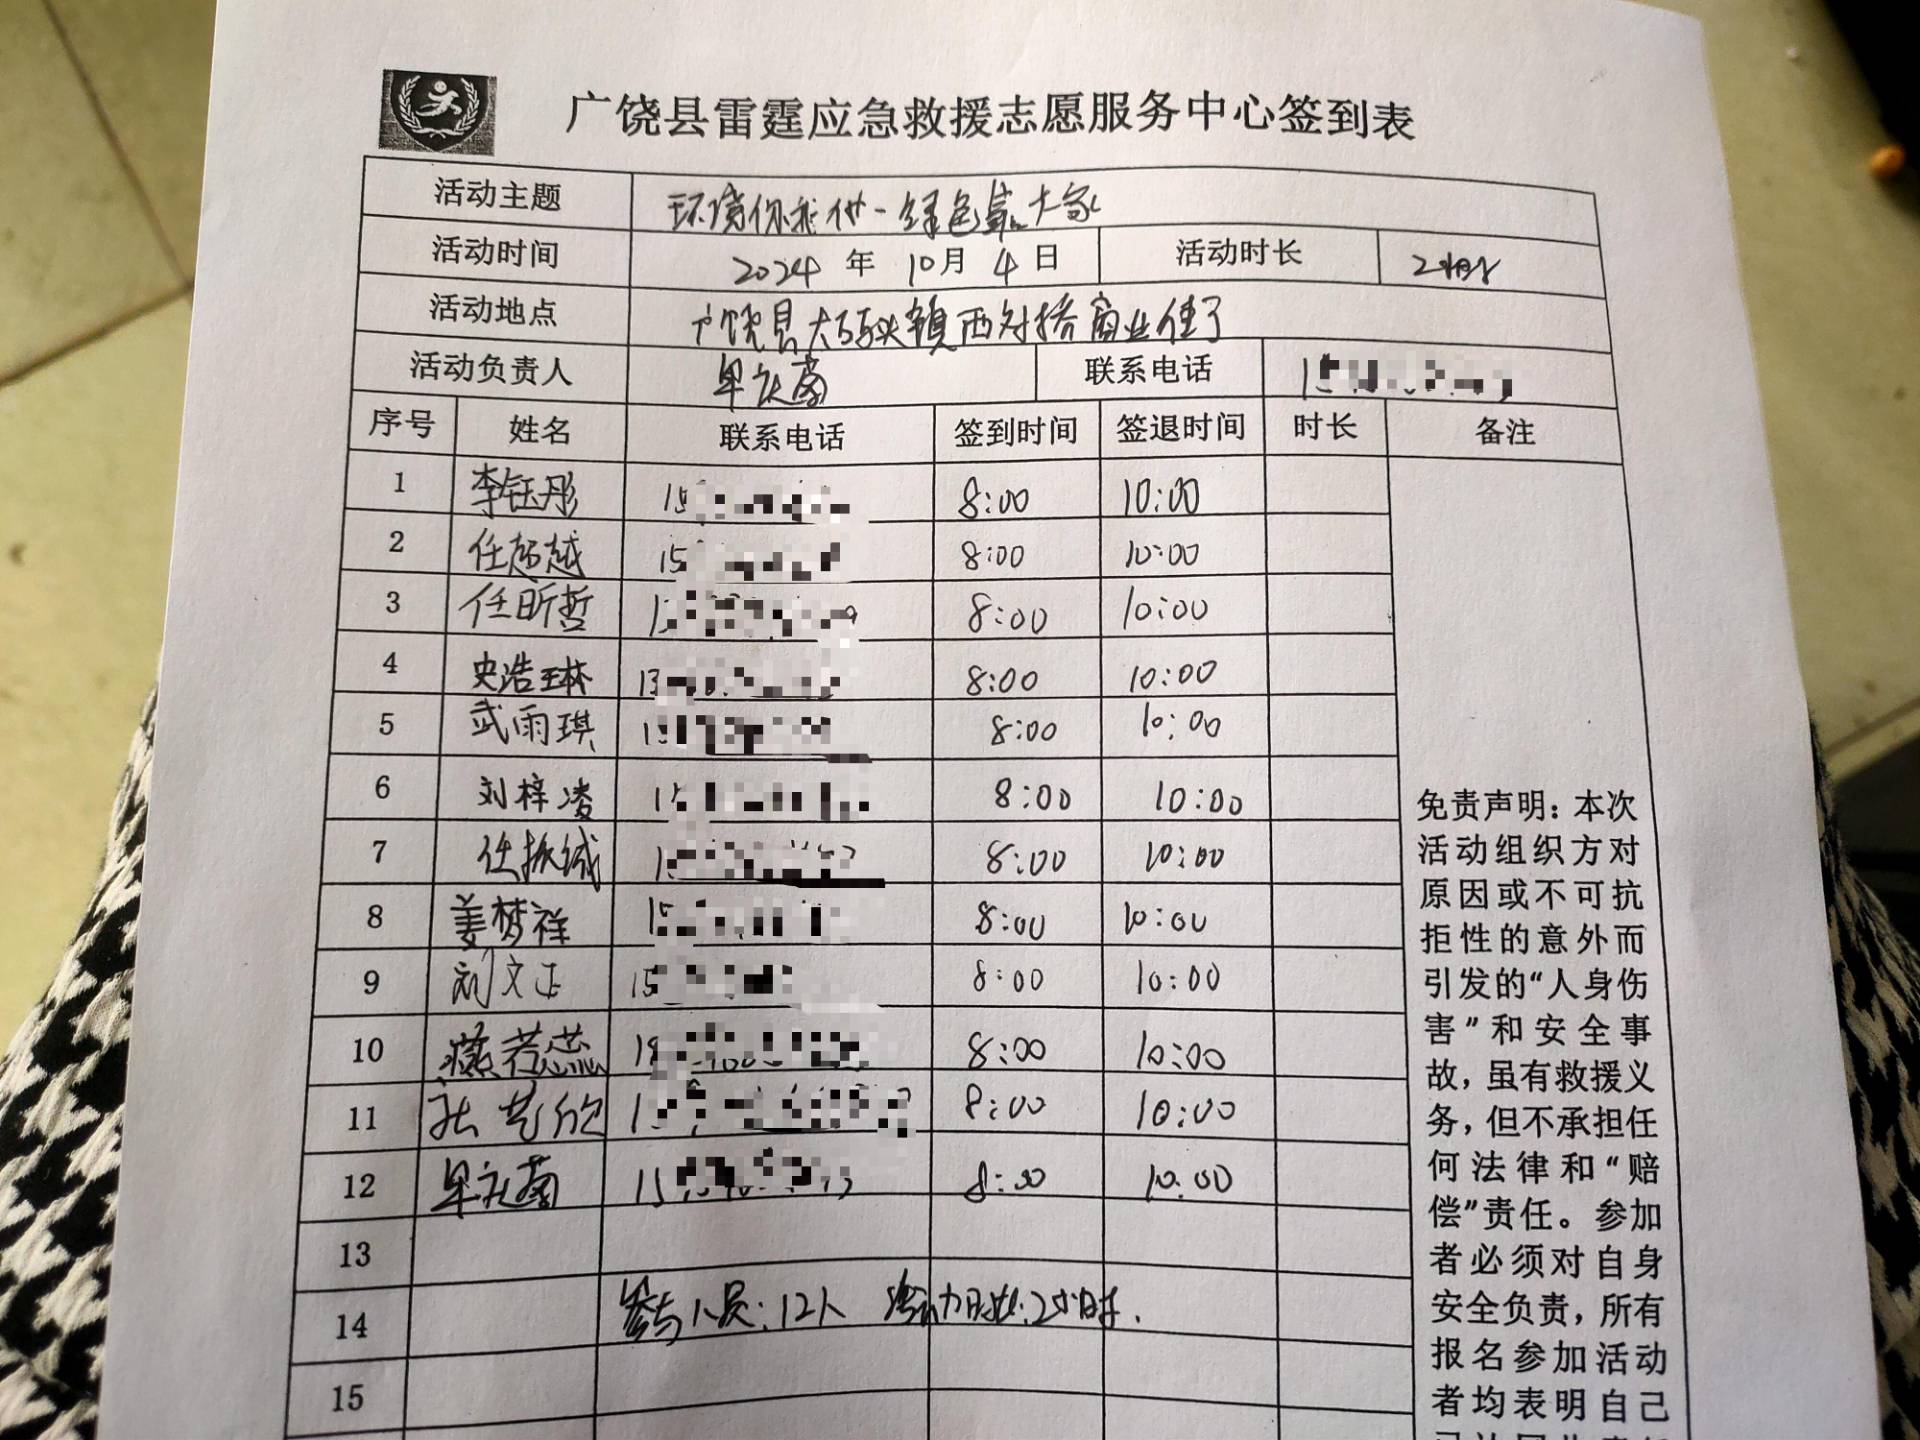 广饶县雷霆应急救援志愿服务中心签到表
活动主题 环境你我他-绿色靠大家
活动时间 2024 年 10月 4 日 活动时长 2小时
活动地点 广饶县大码头镇西对桥商业街
活动负责人 联系电话 15
序号 姓名 联系电话 签到时间 签退时间 时长 备注
1 李钰彤 15 8:00 10:00
2 任超越 15 8:00 10:00
3 任昕哲 8:00 10:00
4 史浩琳 13 8:00 10:00
5 武雨琪 15 8:00 10:00
6 刘梓凌 15 8:00 10:00
7 任振诚 8:00 10:00
8 姜梦祥 15 8:00 10:00
9 刘文正 15 8:00 10:00
10 若蕊 8:00 10:00
11 张艺欣 8:00 10:00
12 15 8:00 10:00
13
14 参与人员:12人 活动时长:2小时.
15
免责声明:本次
活动组织方对
原因或不可抗
拒性的意外而
引发的“人身伤
害”和安全事
故,虽有救援义
务,但不承担任
何法律和“赔
偿”责任。参加
者必须对自身
安全负责,所有
报名参加活动
者均表明自己